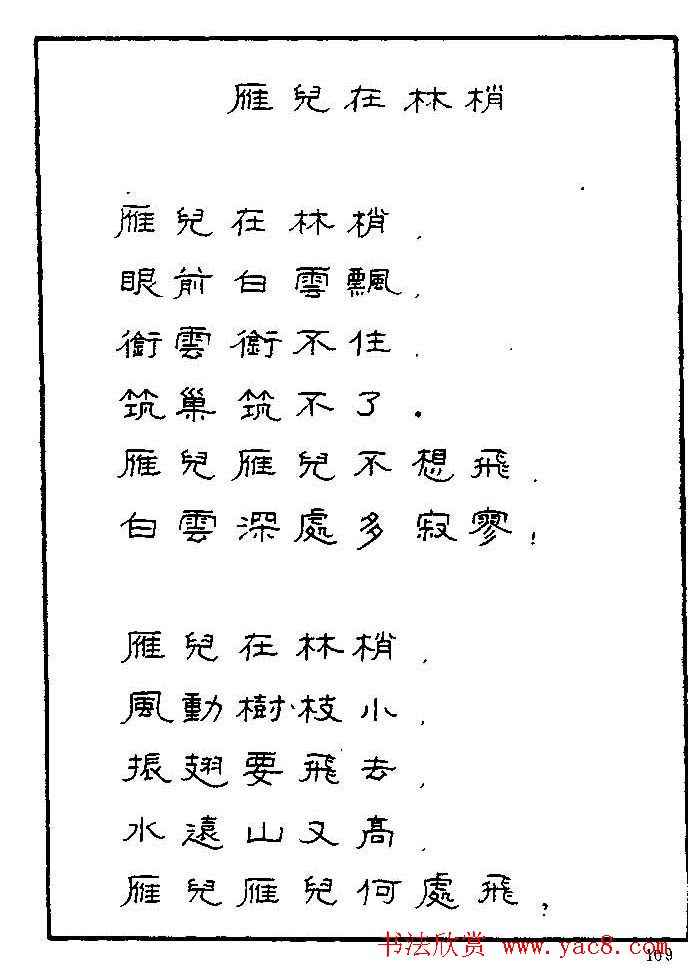 雁兒在林梢
雁兒在林梢，
眼前白雲飄，
銜雲銜不住，
筑巢筑不了。
雁兒雁兒不想飛，
白雲深處多寂寥！
雁兒在林梢，
風動樹枝小，
振翅要飛去，
水遠山又高，
雁兒雁兒何處飛？
书法欣赏 www.yac8.com
109